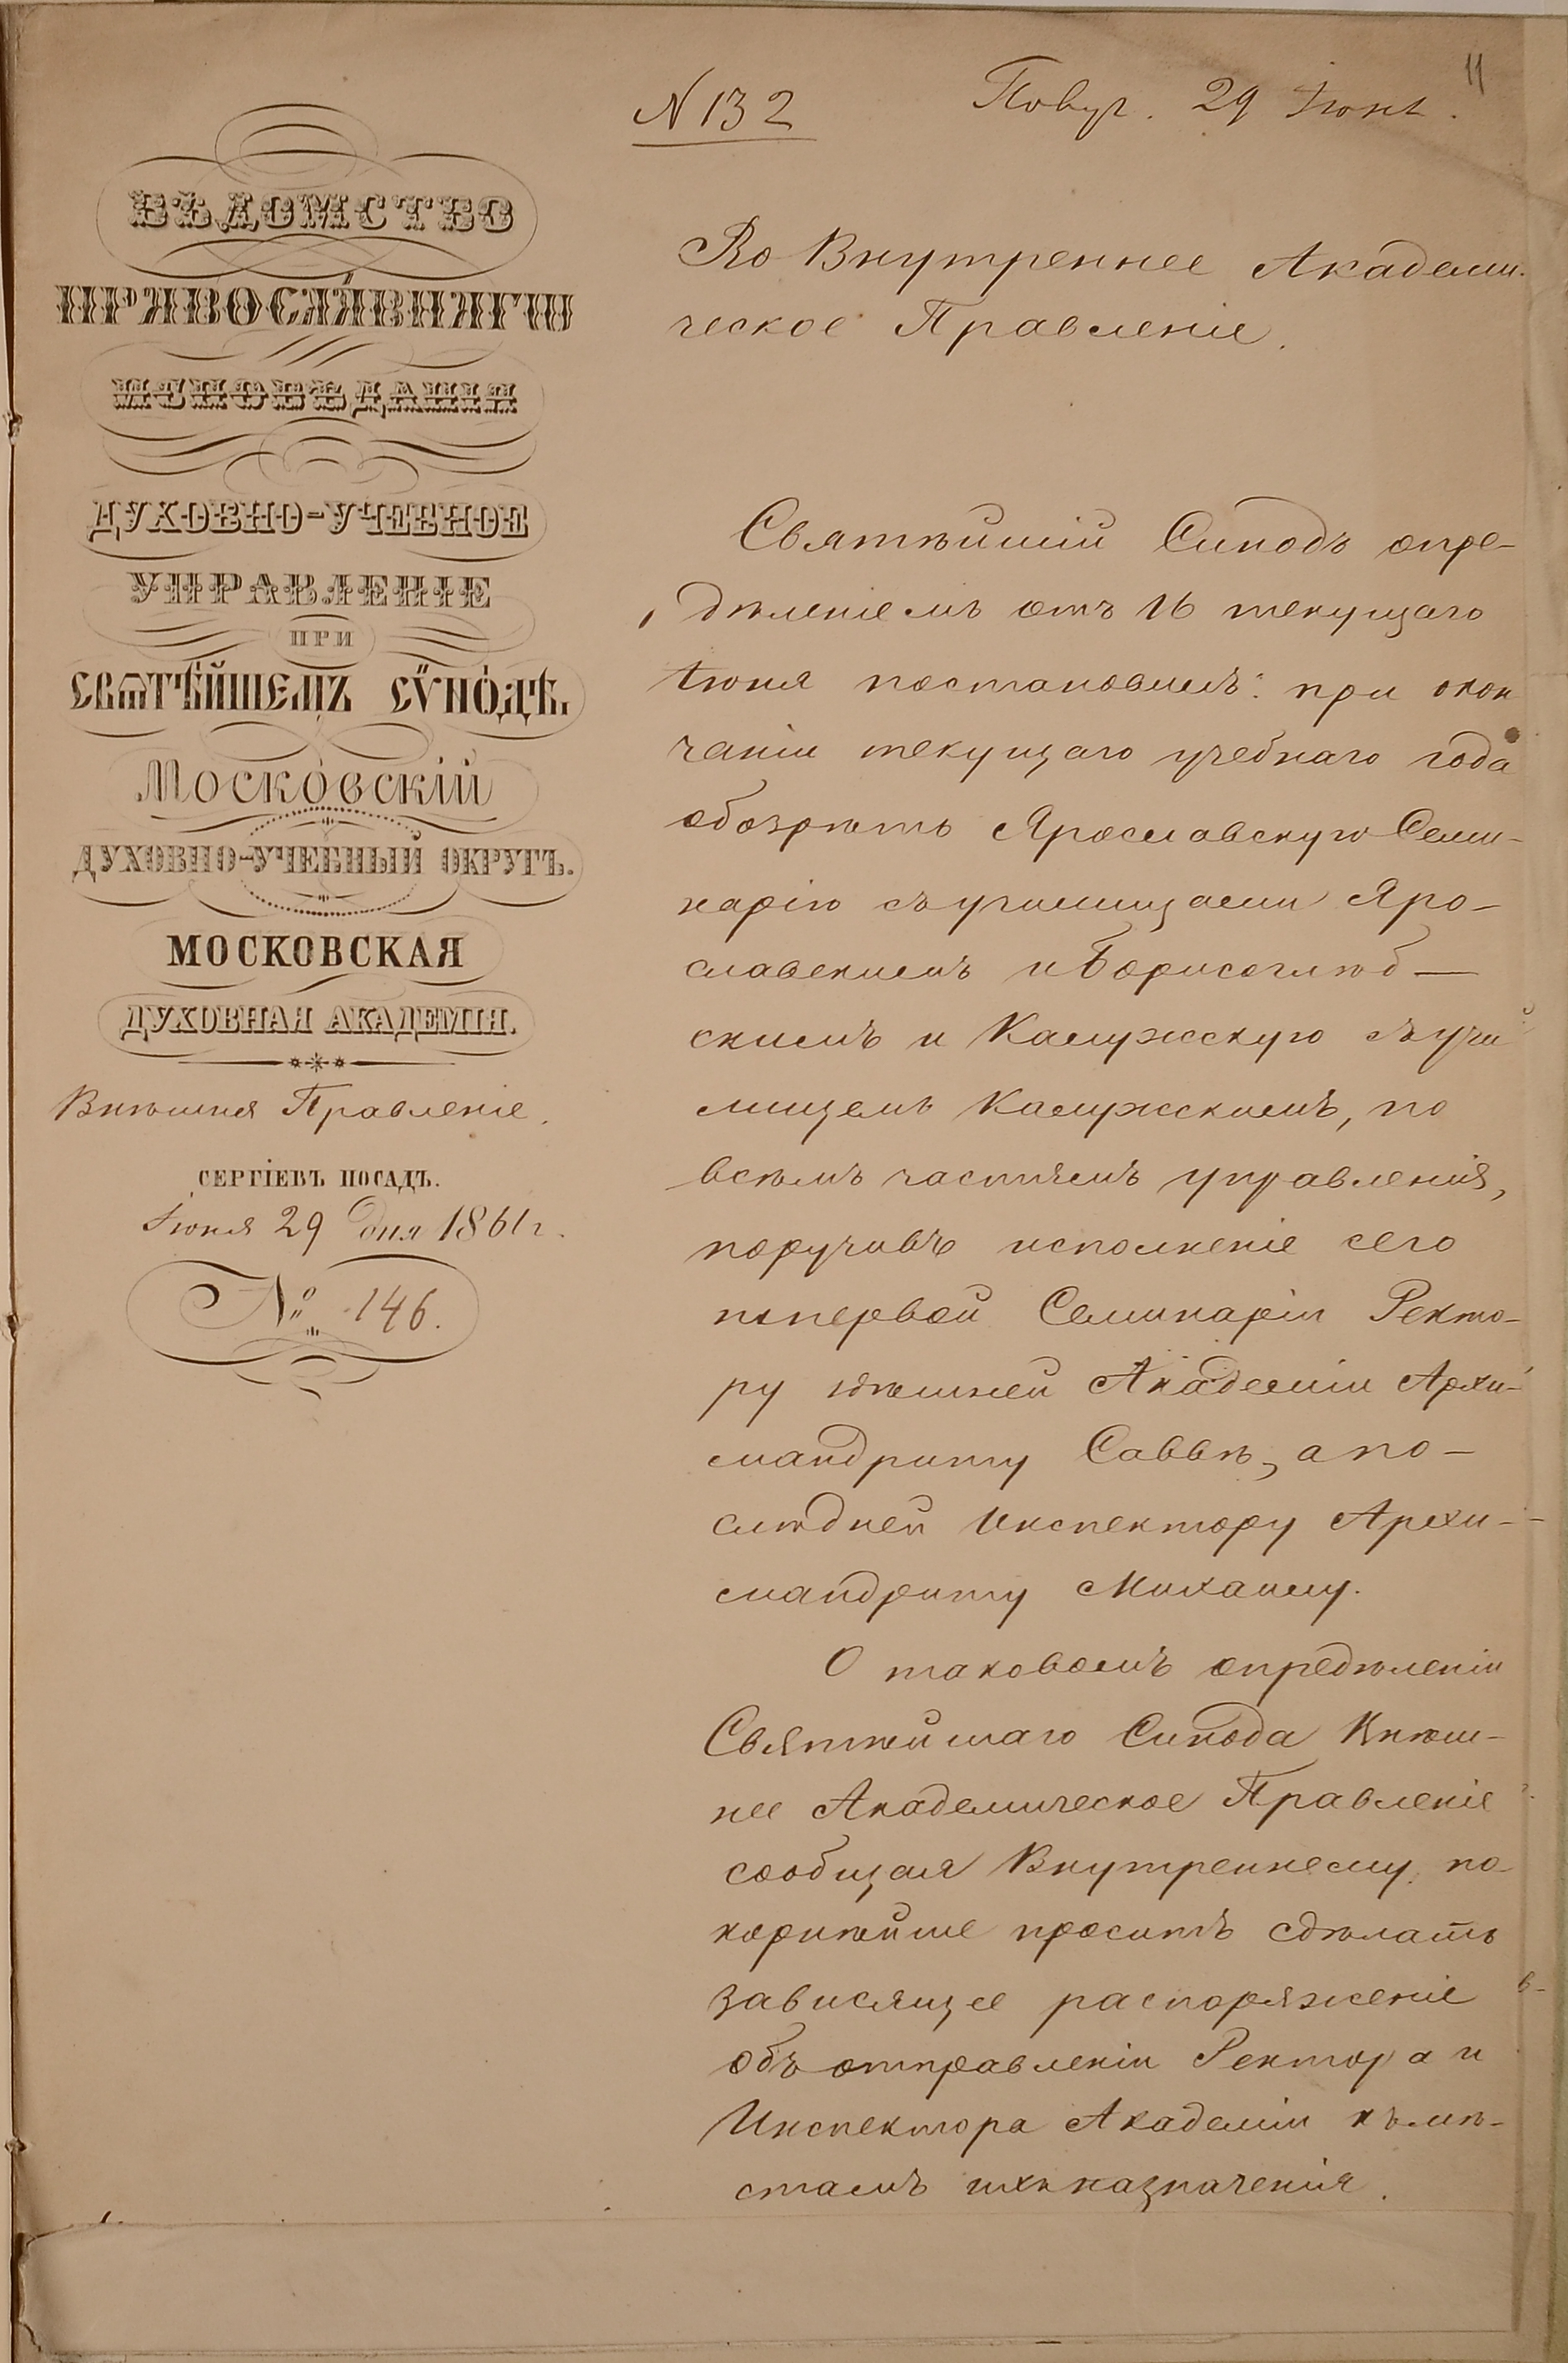 11
N 132
Получ. 29 Іюня.
ВѢДОМСТВО
ПРАВОСЛА́ВНАГѠ
ИСПОВѢДАНІЯ
ДУХОВНО-УЧЕБНОЕ
УПРАВЛЕНІЕ
ПРИ
СВѦТѢ́ЙШЕМЪ СѴНО́ДѢ.
Московскій
ДУХОВНО-УЧЕБНЫЙ ОКРУГЪ.
МОСКОВСКАЯ
ДУХОВНАЯ АКАДЕМІЯ.
Внѣшня Правленіе.
СЕРГІЕВЪ ПОСАДЪ.
Іюня 29 дня 1861 г.
№ 146.
Во Внутреннее Академи-
ческое Правленіе.
Святѣйшій Синодъ опре-
дѣленіемъ отъ 16 текущаго
Іюня постановилъ: при окон
чаніи текущаго учебнаго года
обозрѣть Ярославскую Семи-
нарію съ училищами Яро-
славскимъ и Борисоглѣб-
скимъ и Калужскую съ учи
лищемъ Калужскимъ, по
всѣмъ частямъ управленія,
поручивъ исполненіе сего
по первой Семинаріи Ректо-
ру здѣшней Академіи Архи-
мандриту Саввѣ, а по-
слѣдней Инспектору Архи-
мандриту Михаилу.
О таковомъ опредѣленіи
Святѣйшаго Синода Внѣш-
нее Академическое Правленіе
сообщая Внутреннему, по-
корнѣйше проситъ сдѣлать
зависящее распоряженіе
объ отправленіи Ректора и
Инспектора Академіи къ мѣ-
стамъ ихъ назначенія.